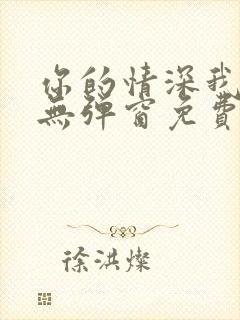 你的情深我
無彈窗免費
徐洪燦